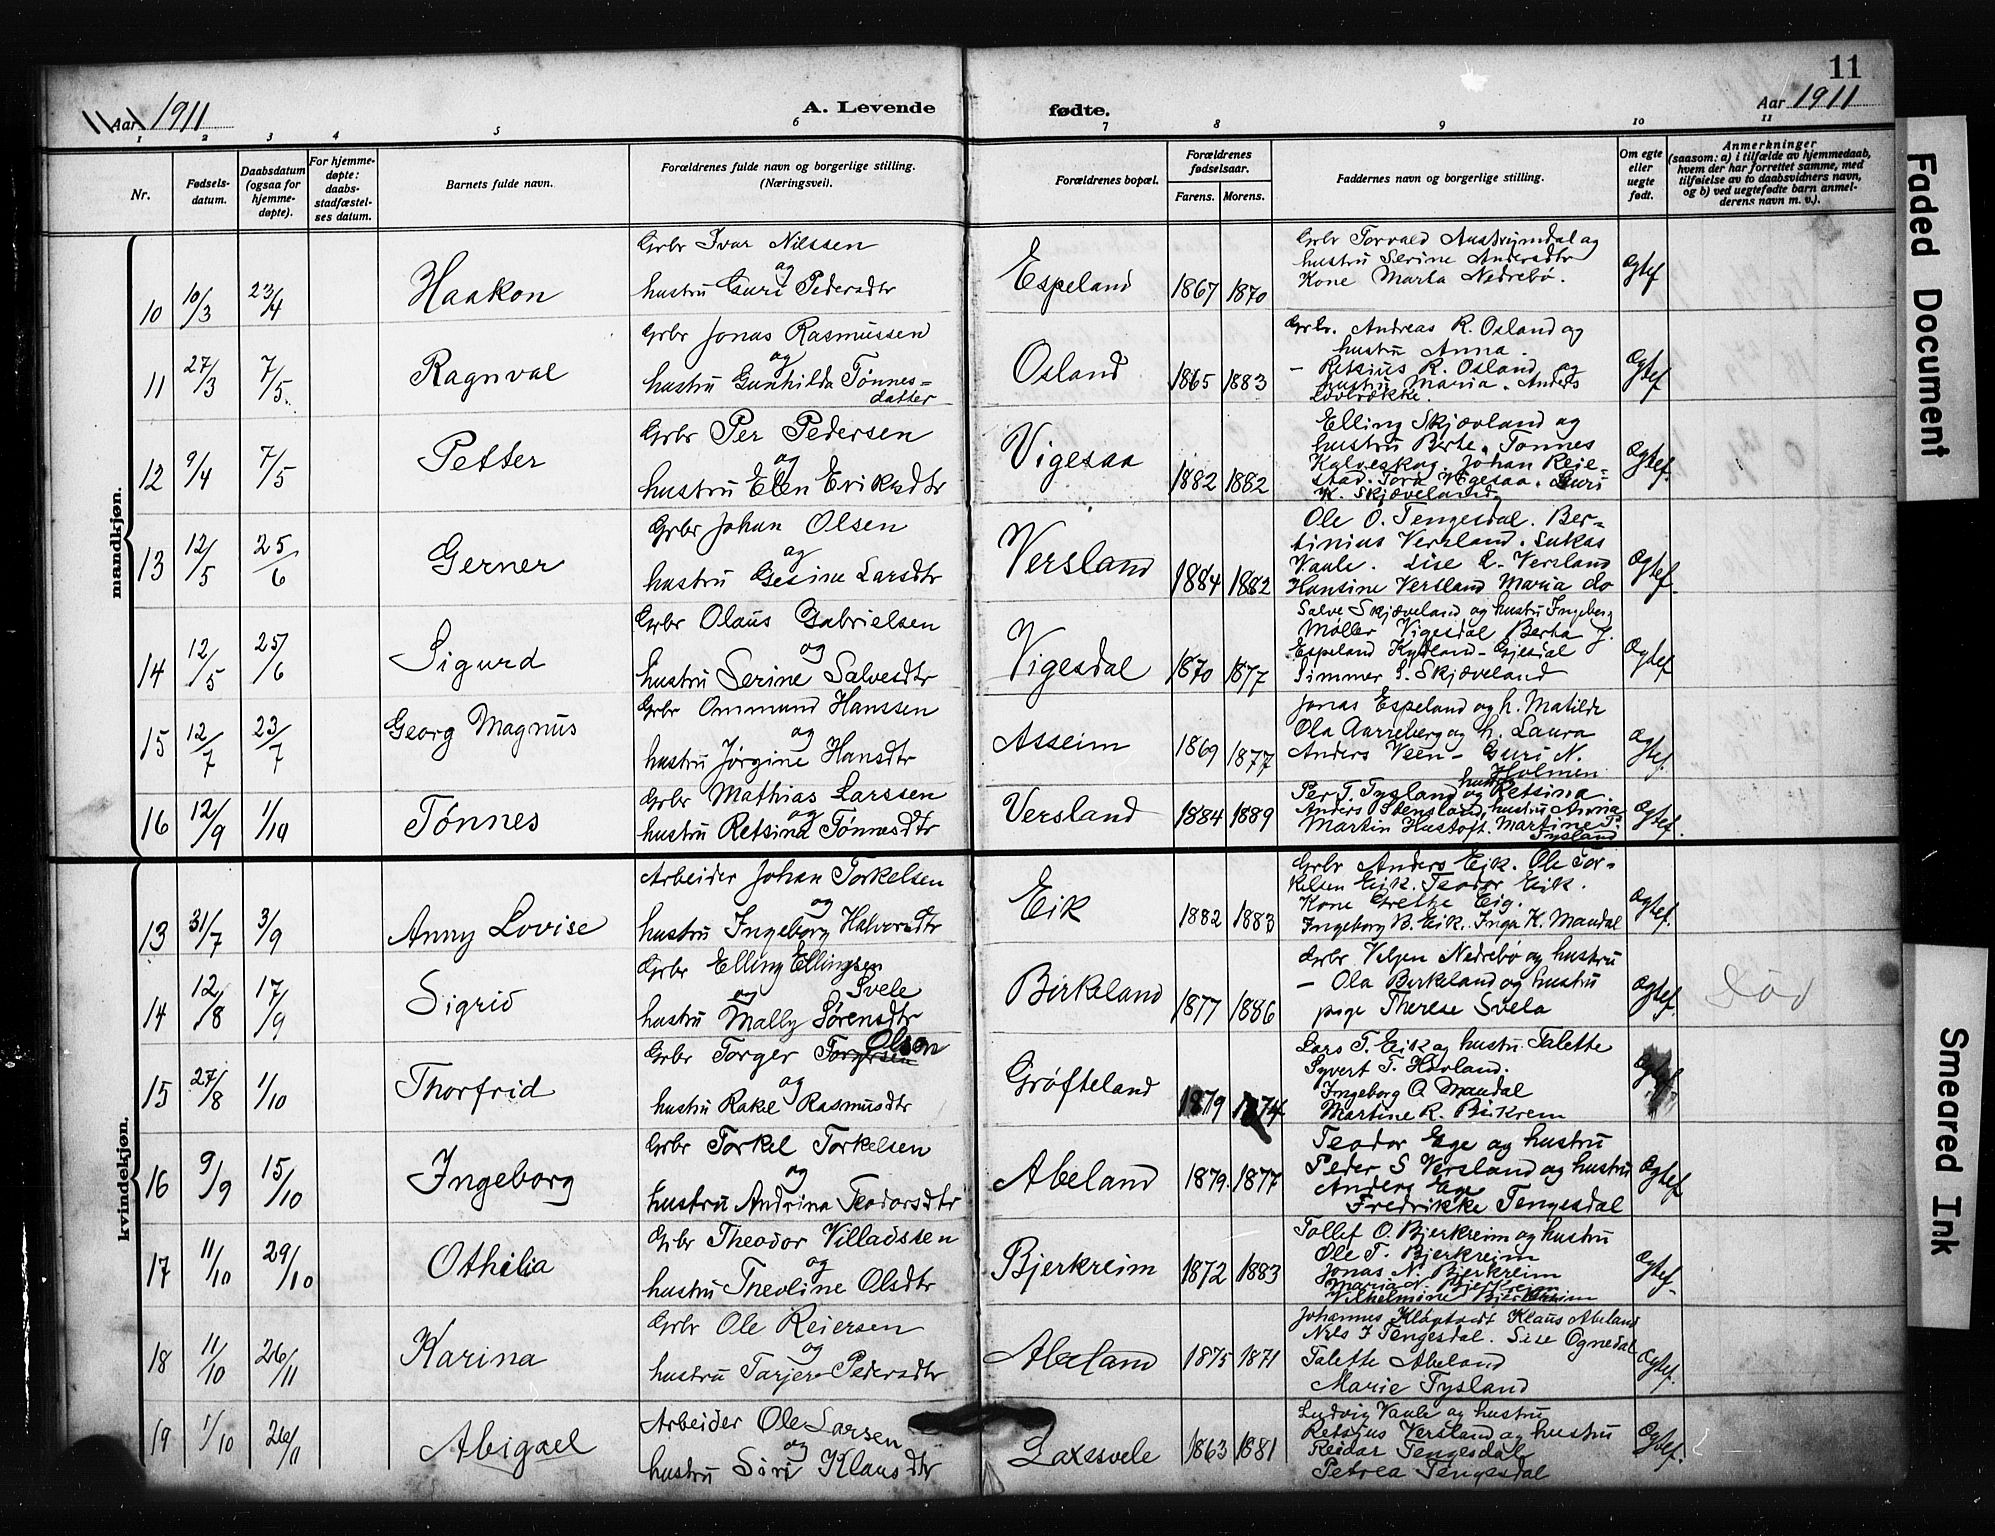 11
Aar 1911
A. Levende fødte.
Aar 1911
1 2 3 4 5 6 7 8 9 10 11
Nr.
Fødsels-
datum.
Daabsdatum
(ogsaa for
hjemme-
døpte).
For hjemme-
døpte:
daabs-
stadfæstel-
ses datum.
Barnets fulde navn.
Forældrenes fulde navn og borgerlige stilling.
(Næringsvei).
Forældrenes bopæl.
Forældrenes
fødselsaar.
Farens. Morens.
Faddernes navn og borgerlige stilling.
Om egte
eller
uegte
født.
Anmerkninger
(saasom: a) i tilfælde av hjemmedaab,
hvem der har forrettet samme, med
tilføielse av to daabsvidners navn,
og b) ved uegtefødte barn anmel-
derens navn m. v.).
mandkjøn.
10 10/3 23/4 Haakon
Grbr Ivar Nilssen
og
hustru Guri Pedersdtr
Espeland 1867 1870
Grbr Torvald Austrumdal og
hustru Serine Andersdtr
Kone Marta Nedrebø.
Ægtef
11 27/3 7/5 Ragnval
Grbr Jonas Rasmussen
og
hustru Gunhilda Tønnes=
datter
Osland 1865 1883
Grbr. Andreas R. Osland og
hustru Anna.
- Retsius R. Osland og
hustru Maria. Anders
Ægtef
12 9/4 7/5 Petter
Grbr Per Pedersen
og
hustru Elen Eriksdtr
Vigesaa 1882 1882
Elling Skjævland og
hustru Berte. Tønnes
Kalveskog. Johan Reie=
stad. Tora Vigesaa. Guri
K. Skjæveland
Ægtef.
13 12/5 25/6 Gerner
Grbr Johan Olsen
og
hustru Gesine Larsdtr
Versland 1884 1882
Ole O. Tengesdal. Ber=
tinius Versland. Lukas
Vaule. Lise L. Versland
Hansine Versland Maria do
Ægtef.
14 12/5 25/6 Sigurd
Grbr Olaus Gabrielsen
og
hustru Serine Salvesdtr
Vigesdal 1870 1877
Salve Skjæveland og hustru Ingeborg
Møller Vigesdal Berta J.
Espeland Kydland - Gjesdal
Simmer S. Skjæveland
Ægtef.
15 12/7 23/7 Georg Magnus
Grbr Ommund Hanssen
og
hustru Jørgine Hansdtr
Asseim 1869 1877
Jonas Espeland og h. Matilde
Ola Aarreberg og h. Laura
Anders Veen - Guri N.
Holmen
Ægtef.
16 12/9 1/10 Tønnes
Grbr Mathias Larssen
og
hustru Retsina Tønnesdtr
Versland 1884 1889
Per T. Tysland og hustru Retsina
Anders Stensland, hustru Anna
Martin Hustoft. Martine T.
Tysland
Ægtef.
kvindekjøn.
13 31/7 3/9 Anny Lovise
Arbeider Johan Torkelsen
og
hustru Ingeborg Halvorsdtr
Eik 1882 1883
Grbr Anders Eik. Ole Tor=
kelsen Eik. Teodor Eik.
Kone Grethe Eig.
Ingeborg B. Eik. Inga K. Mandal
Ægtef.
14 12/8 17/9 Sigrid
Grbr Elling Ellingsen
og Svele
hustru Mally Sørensdtr
Birkeland 1877 1886
Grbr Nedrebø og hustru
- Ola Birkeland og hustru
pige Therese Svela
Ægtef.
Død
15 27/8 1/10 Thorfrid
Grbr Torger Torgersen Olsen
og
hustru Rakel Rasmusdtr
Grøfteland 1879 1874
Lars T. Eik og hustru Talette
Syvert T. Havland.
Ingeborg O. Mandal
Martine R. Birkrem
Ægtef
16 9/9 15/10 Ingeborg
Grbr Torkel Torkelsen
og
hustru Andrina Teodorsdtr
Abeland 1879. 1877
Teodor Ege og hustru
Peder S Versland og hustru
Anders Ege
Fredrikke Tengesdal
Ægtef
17 11/10 29/10 Othilia
Grbr Theodor Villadssen
og
hustru Theoline Olsdtr
Bjerkreim 1872 1883
Tollef O. Bjerkreim og hustru
Ole T. Bjerkreim
Jonas N. Bjerkreim
Maria N. Bjerkreim
Vilhelmine Bjerkreim
Ægtef.
18 11/10 26/11 Karina
Grbr Ole Reiersen
og
hustru Tarjer Pedersdtr
Abeland 1875 1871
Johannes Klaus Abeland
Nils J Tengesdal. Sise Ognedal
Talette Abeland
Marie Tysland
Ægtef.
19 1/10 26/11 Abigael
Arbeider Ole Larsen
og
hustru Siri Klausdtr
Laxesvele 1863 1881
Ludvig Vaule og hustru
Retsius Versland og hustru
Reidar Tengesdal
Petrea Tengesdal
Ægtef.
Faded Document
Smeared Ink